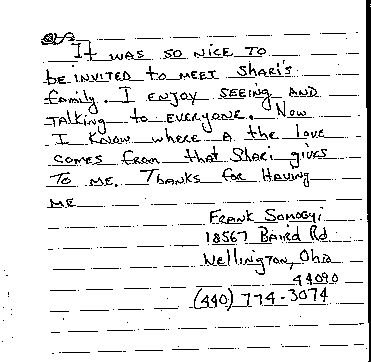 It was so nice to
be invited to meet Shari's
family. I enjoy seeing and
talking to everyone. Now
I know where a the love
comes from that Shari gives
to me. Thanks for having
me
Frank Somogyi
18567 Baird Rd
Wellington, Ohio
44090
(440) 774-3074